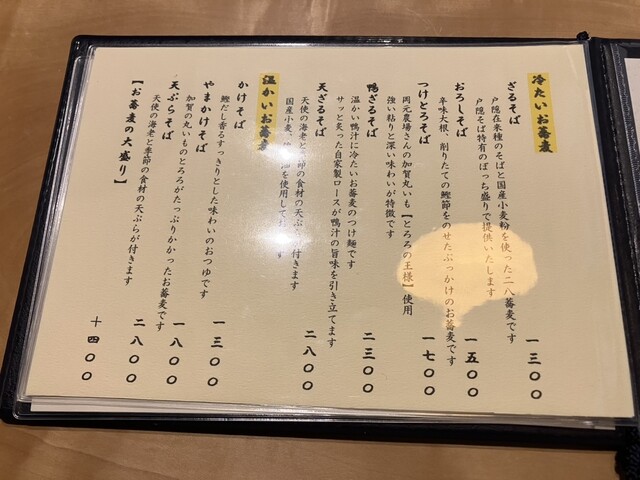 冷たいお蕎麦
ざるそば 一三〇〇
戸隠在来種のそばと国産小麦粉を使った二八蕎麦です
戸隠そば特有のぼっち盛りで提供いたします
おろしそば 一五〇〇
辛味大根、削りたての鰹節をのせたぶっかけのお蕎麦です
つけとろそば 一七〇〇
岡元農場さんの加賀丸いも【とろろの王様】使用
強い粘りと深い味わいが特徴です
鴨ざるそば 二三〇〇
温かい鴨汁に冷たいお蕎麦のつけ麺です
サッと炙った自家製ロースが鴨汁の旨味を引き立てます
天ざるそば 二八〇〇
天使の海老と季節の食材の天ぷらが付きます
国産小麦、を使用して
温かいお蕎麦
かけそば 一三〇〇
鰹だし香るすっきりとした味わいのおつゆです
やまかけそば 一八〇〇
加賀の丸いものとろろがたっぷりかかったお蕎麦です
天ぷらそば 二八〇〇
天使の海老と季節の食材の天ぷらが付きます
【お蕎麦の大盛り】 十四〇〇